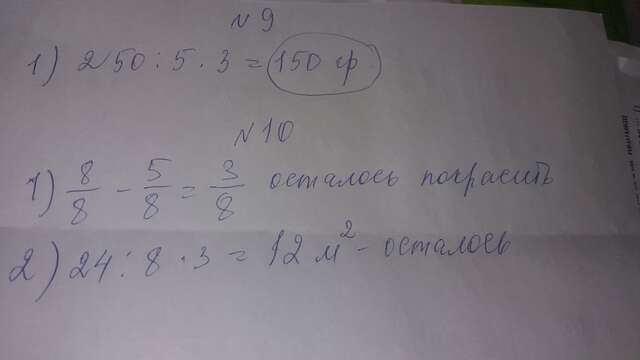 № 9
1) 250 : 5 · 3 = 150 гр
№ 10
1) 8/8 - 5/8 = 3/8 осталось покрасить
2) 24 : 8 · 3 = 12 м² - осталось